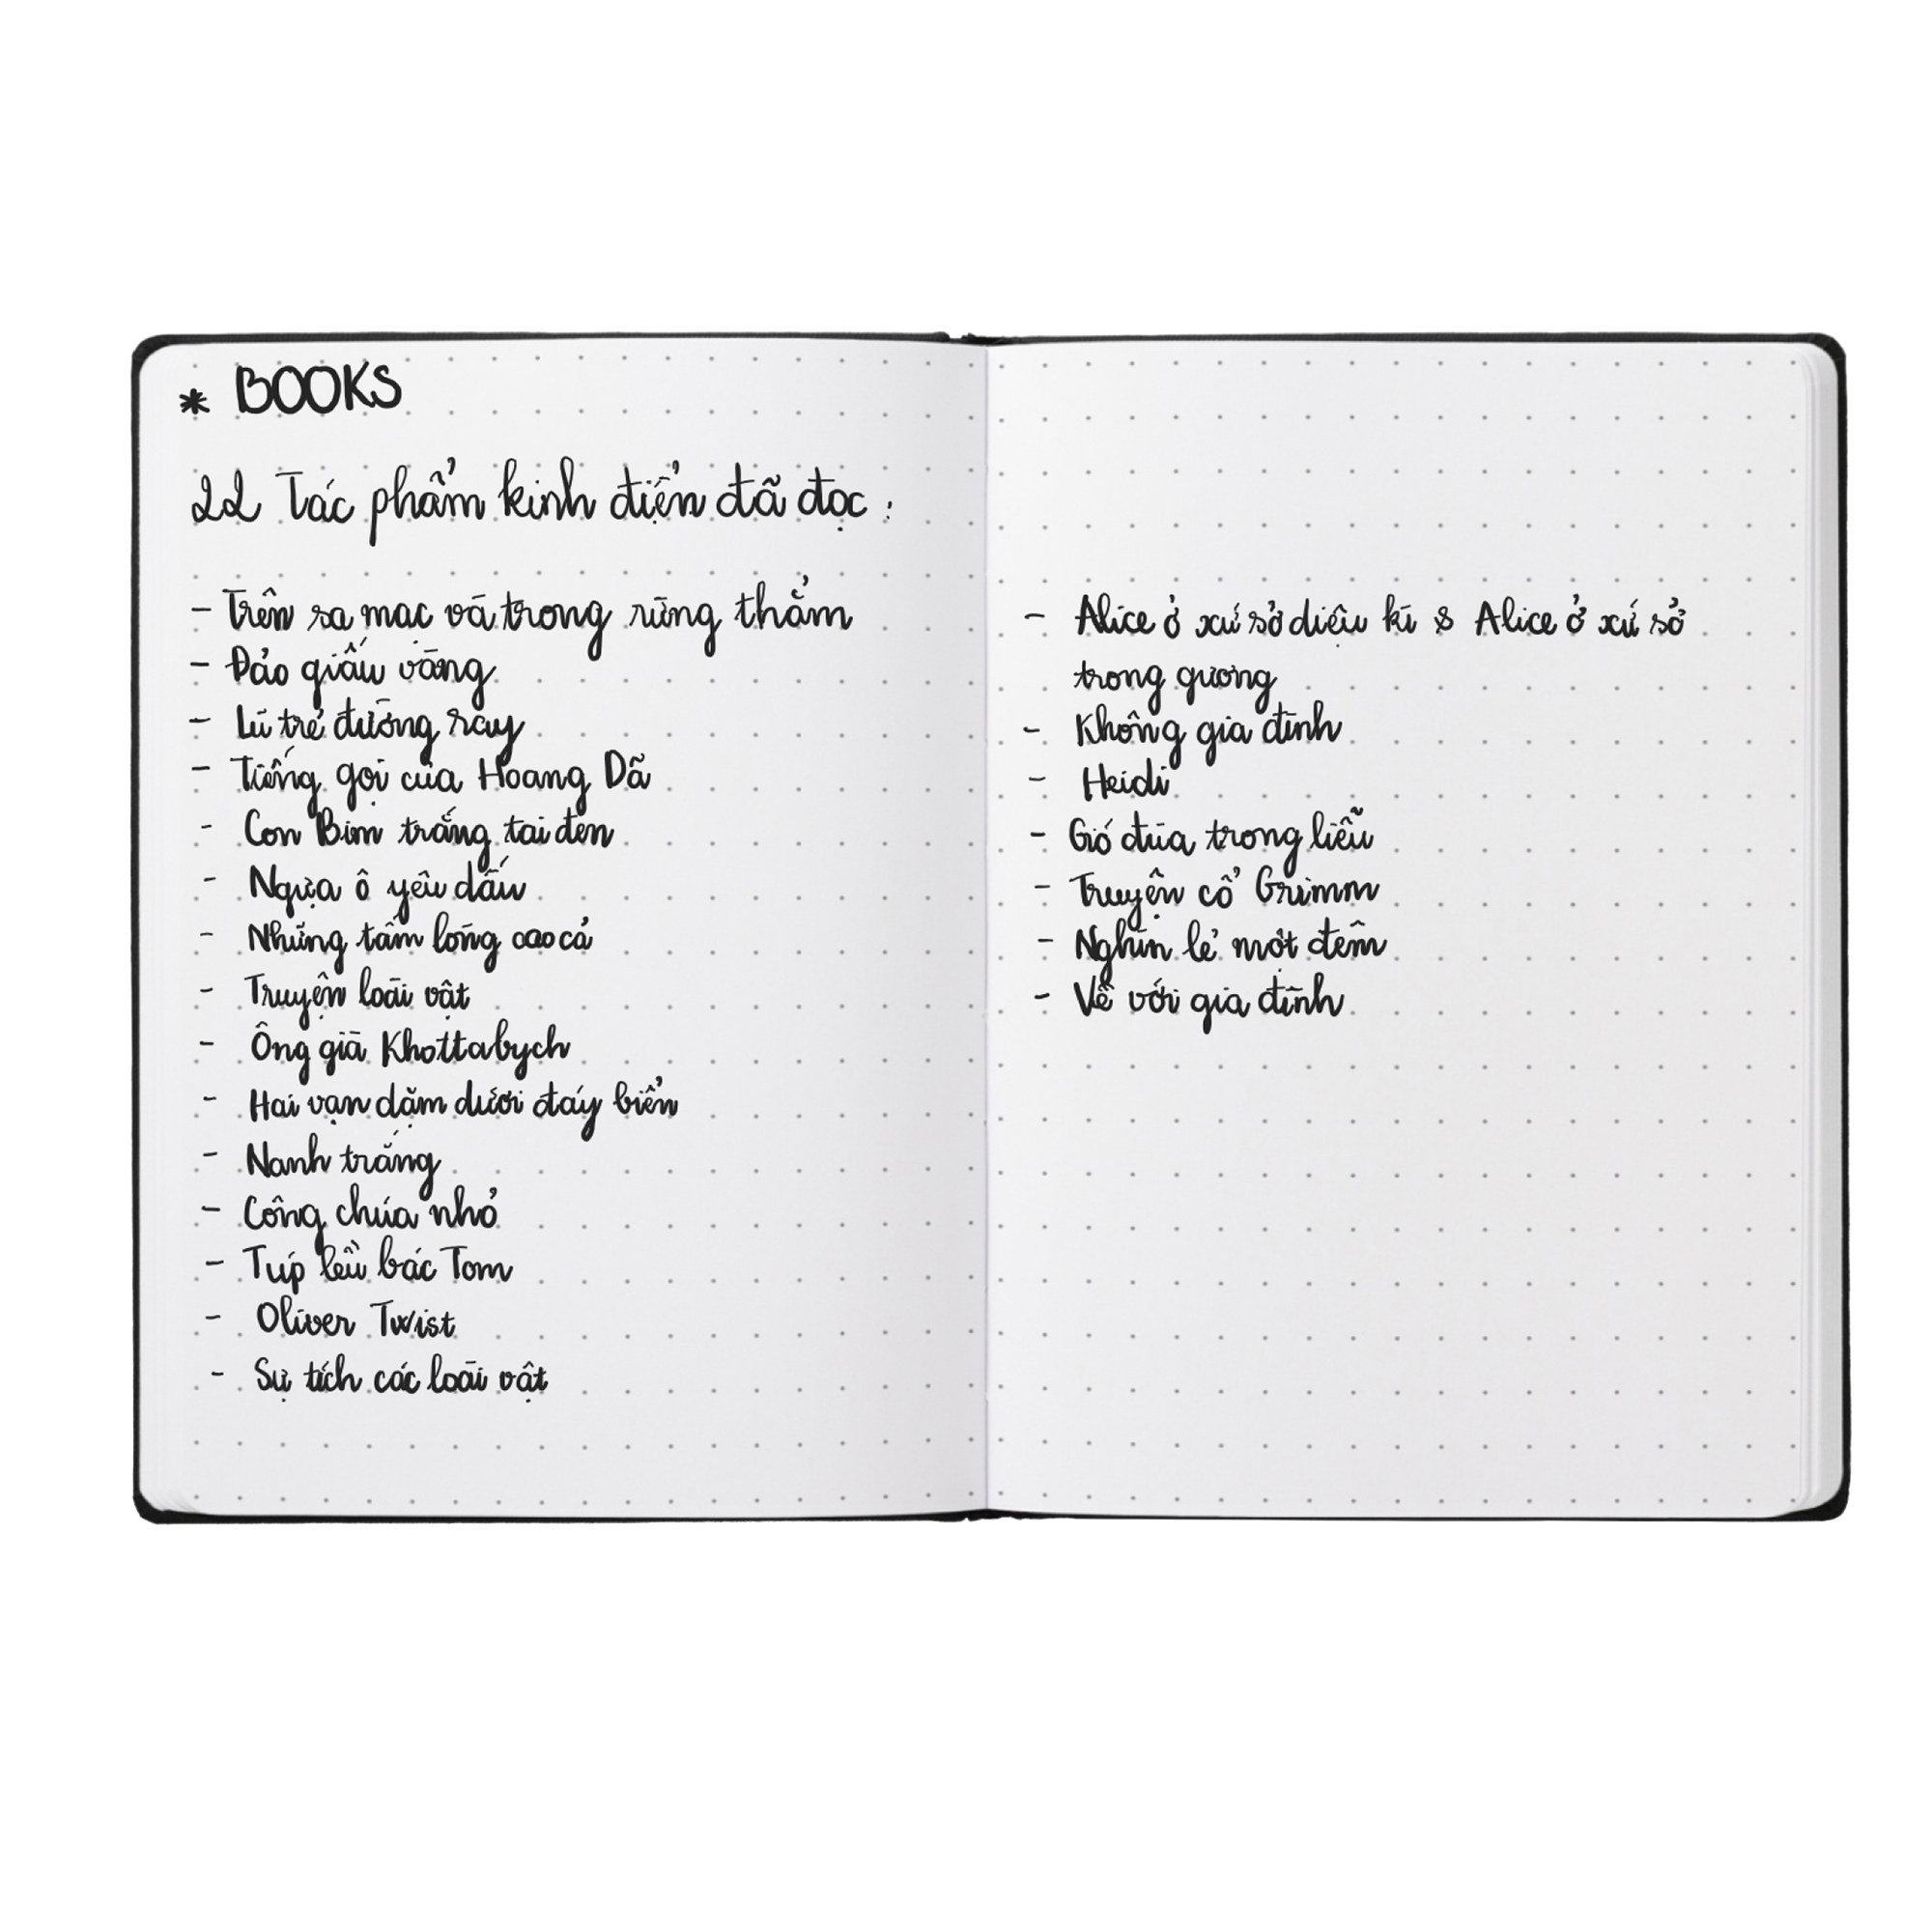 * BOOKS
22 Tác phẩm kinh điển đã đọc :
- Trên sa mạc và trong rừng thẳm
- Đảo giấu vàng
- Lũ trẻ đường ray
- Tiếng gọi của Hoang Dã
- Con Bim trắng tai đen
- Ngựa ô yêu dấu
- Những tấm lòng cao cả
- Truyện loài vật
- Ông già Khottabych
- Hai vạn dặm dưới đáy biển
- Nanh trắng
- Công chúa nhỏ
- Túp lều bác Tom
- Oliver Twist
- Sự tích các loài vật
- Alice ở xứ sở diệu kì & Alice ở xứ sở
trong gương
- Không gia đình
- Heidi
- Gió đùa trong liễu
- Truyện cổ Grimm
- Nghìn lẻ một đêm
- Về với gia đình